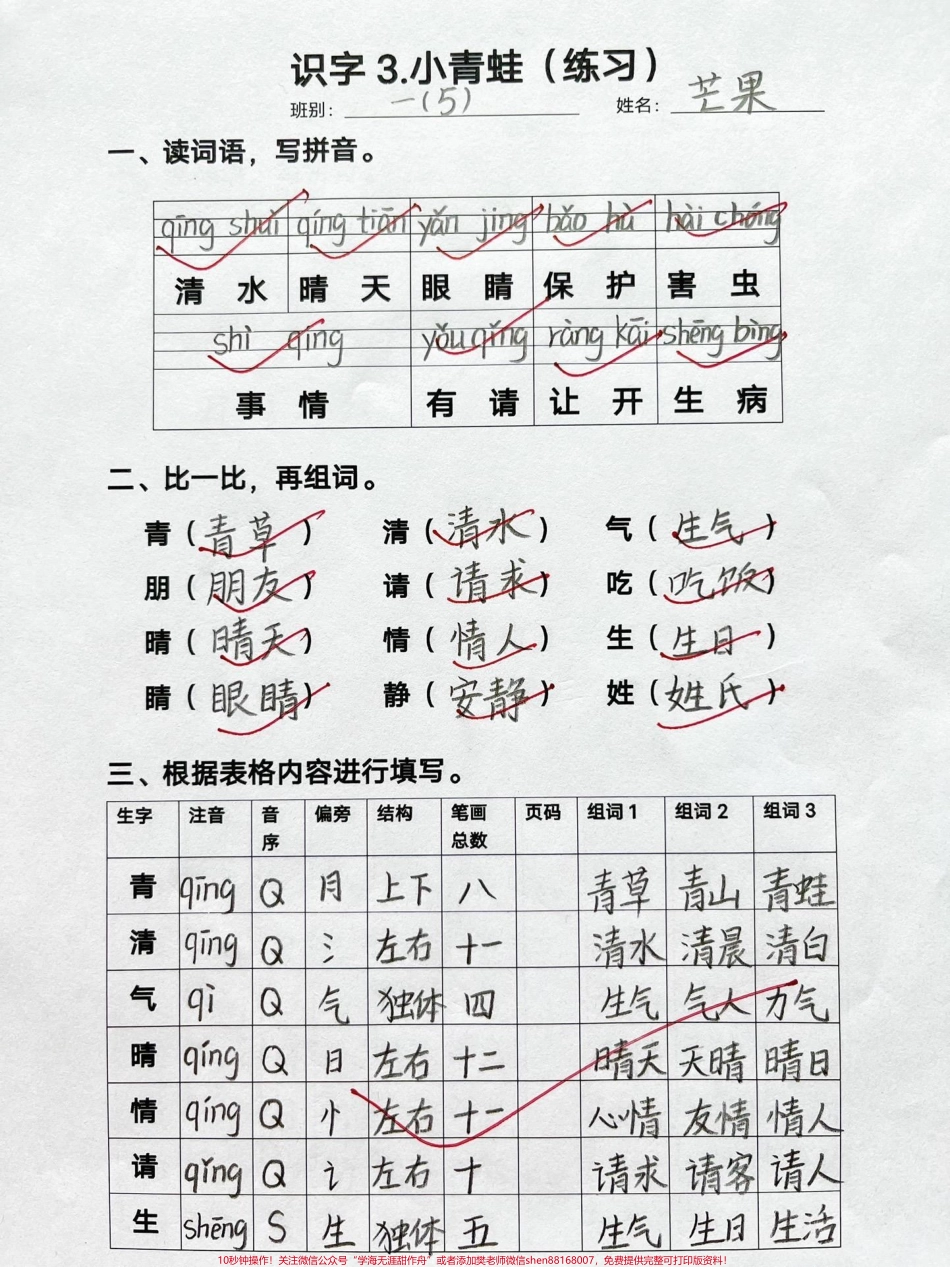 识字 3.小青蛙（练习）
班别： 一(5) 姓名： 芒果
一、读词语，写拼音。
qīng shuǐ qíng tiān yǎn jing bǎo hù hài chóng
清 水 晴 天 眼 睛 保 护 害 虫
shì qíng yǒu qǐng ràng kāi shēng bìng
事 情 有 请 让 开 生 病
二、比一比，再组词。
青（青草） 清（清水） 气（生气）
朋（朋友） 请（请求） 吃（吃饭）
晴（晴天） 情（情人） 生（生日）
睛（眼睛） 静（安静） 姓（姓氏）
三、根据表格内容进行填写。
生字 注音 音序 偏旁 结构 笔画总数 页码 组词 1 组词 2 组词 3
青 qīng Q 月 上下 八 青草 青山 青蛙
清 qīng Q 氵 左右 十一 清水 清晨 清白
气 qì Q 气 独体 四 生气 气人 力气
晴 qíng Q 日 左右 十二 晴天 天晴 晴日
情 qíng Q 忄 左右 十一 心情 友情 情人
请 qǐng Q 讠 左右 十 请求 请客 请人
生 shēng S 生 独体 五 生气 生日 生活
10秒钟操作！关注微信公众号“学海无涯甜作舟”或者添加樊老师微信shen88168007，免费提供完整可打印版资料！